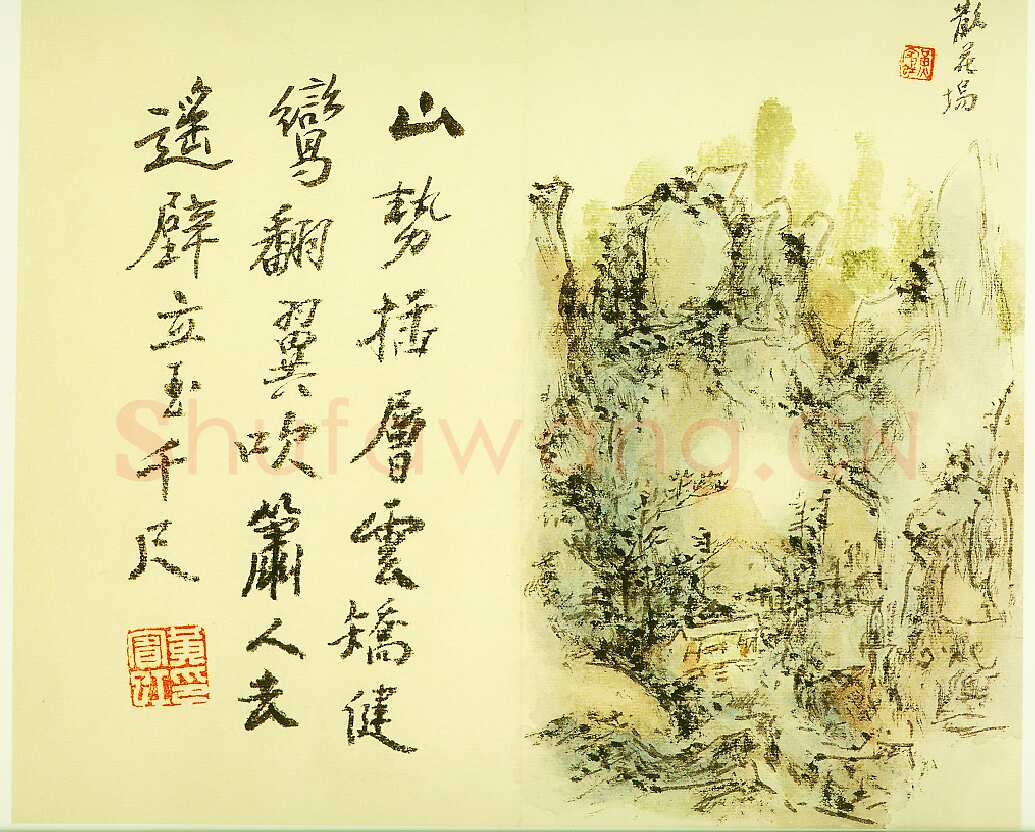 散花塢
山勢插層雲矯健
鸞翻翼吹簫人去
遙壁立玉千尺
黃賓虹印
Shufawang.CN